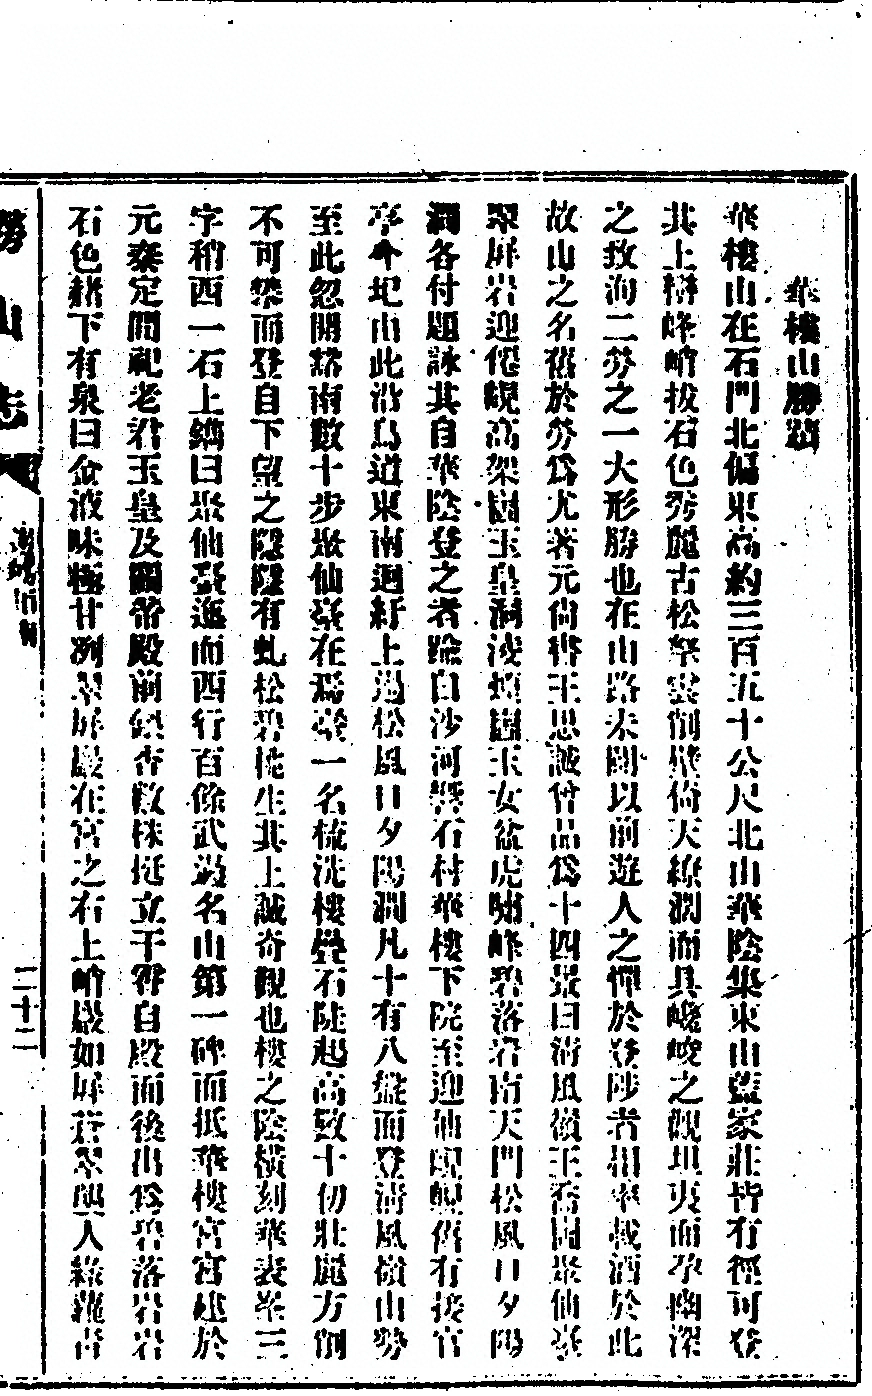 華樓山勝蹟
華樓山在石門北偏東高約三百五十公尺北山華陰集東山藍家莊皆有徑可登
其上群峰峭拔石色秀麗古松拏雲削壁倚天繚澗而具巉峻之觀坦夷而孕幽深
之致洵二勞之一大形勝也在山路未闢以前遊人之憚於登陟者相率載酒於此
故山之名舊於勞爲尤著元尙書王思誠曾品爲十四景曰淸風嶺王喬崮聚仙臺
翠屏岩迎仙峴高架崮玉皇洞凌煙崮玉女盆虎嘯峰碧落岩南天門松風口夕陽
澗各付題詠其自華陰登之者踰白沙河磐石村華樓下院至迎仙峴峴舊有接官
亭今圮由此沿鳥道東南迴紆上過松風口夕陽澗凡十有八盤而登淸風嶺山勢
至此忽開豁南數十步聚仙臺在焉臺一名梳洗樓疊石陡起高數十仞壯麗方削
不可梯而登自下望之隱隱有虬松碧桃生其上誠奇觀也樓之陰橫刻華表峯三
字稍西一石上鐫曰聚仙臺迤而西行百餘武過名山第一碑而抵華樓宮宮建於
元泰定間祀老君玉皇及關帝殿前銀杏數株挺立干霄自殿而後出爲碧落岩岩
石色赭下有泉曰金液味極甘冽翠屏巖在宮之右上峭巖如屏蒼翠照人綠蘿古
勞山志
二十二